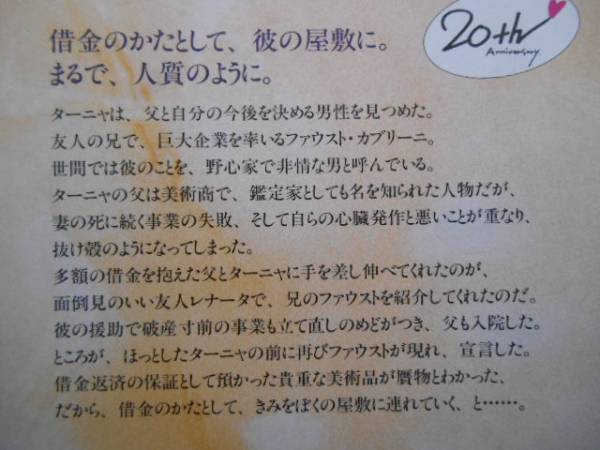 20th
Anniversary
借金のかたとして、彼の屋敷に。
まるで、人質のように。
ターニャは、父と自分の今後を決める男性を見つめた。
友人の兄で、巨大企業を率いるファウスト・カブリーニ。
世間では彼のことを、野心家で非情な男と呼んでいる。
ターニャの父は美術商で、鑑定家としても名を知られた人物だが、
妻の死に続く事業の失敗、そして自らの心臓発作と悪いことが重なり、
抜け殻のようになってしまった。
多額の借金を抱えた父とターニャに手を差し伸べてくれたのが、
面倒見のいい友人レナータで、兄のファウストを紹介してくれたのだ。
彼の援助で破産寸前の事業も立て直しのめどがつき、父も入院した。
ところが、ほっとしたターニャの前に再びファウストが現れ、宣言した。
借金返済の保証として預かった貴重な美術品が贋物とわかった、
だから、借金のかたとして、きみをぼくの屋敷に連れていく、と……。